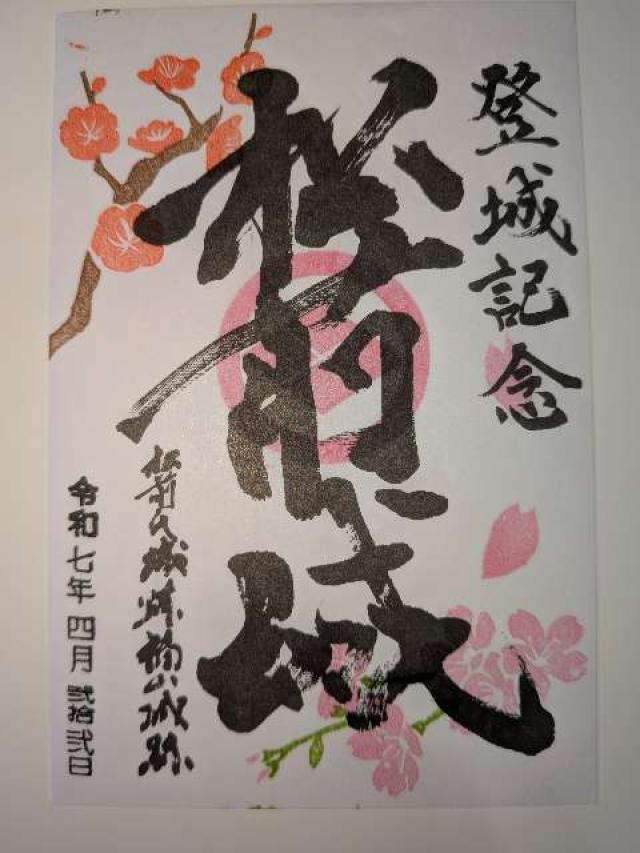 登城記念
松前城
松前氏城跡福山城跡
令和七年 四月 弐拾弐日